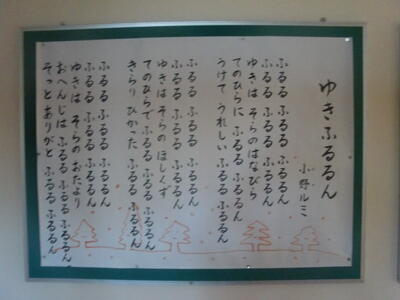 ゆきふるるん
小野ルミ
ふるる ふるる ふるるん
ふるる ふるる ふるるん
ゆきは そらのはなびら
てのひらに ふるる ふるるん
うけて うれしい ふるる ふるるん
ふるる ふるる ふるるん
ふるる ふるる ふるるん
ゆきは そらの ほしくず
てのひらで ふるる ふるる ふるるん
きらり ひかった ふるる ふるるん
ふるる ふるる ふるるん
ふるる ふるる ふるるん
ゆきは そらの おたより
おへんじは ふるる ふるる ふるるん
そっと ありがと ふるる ふるるん